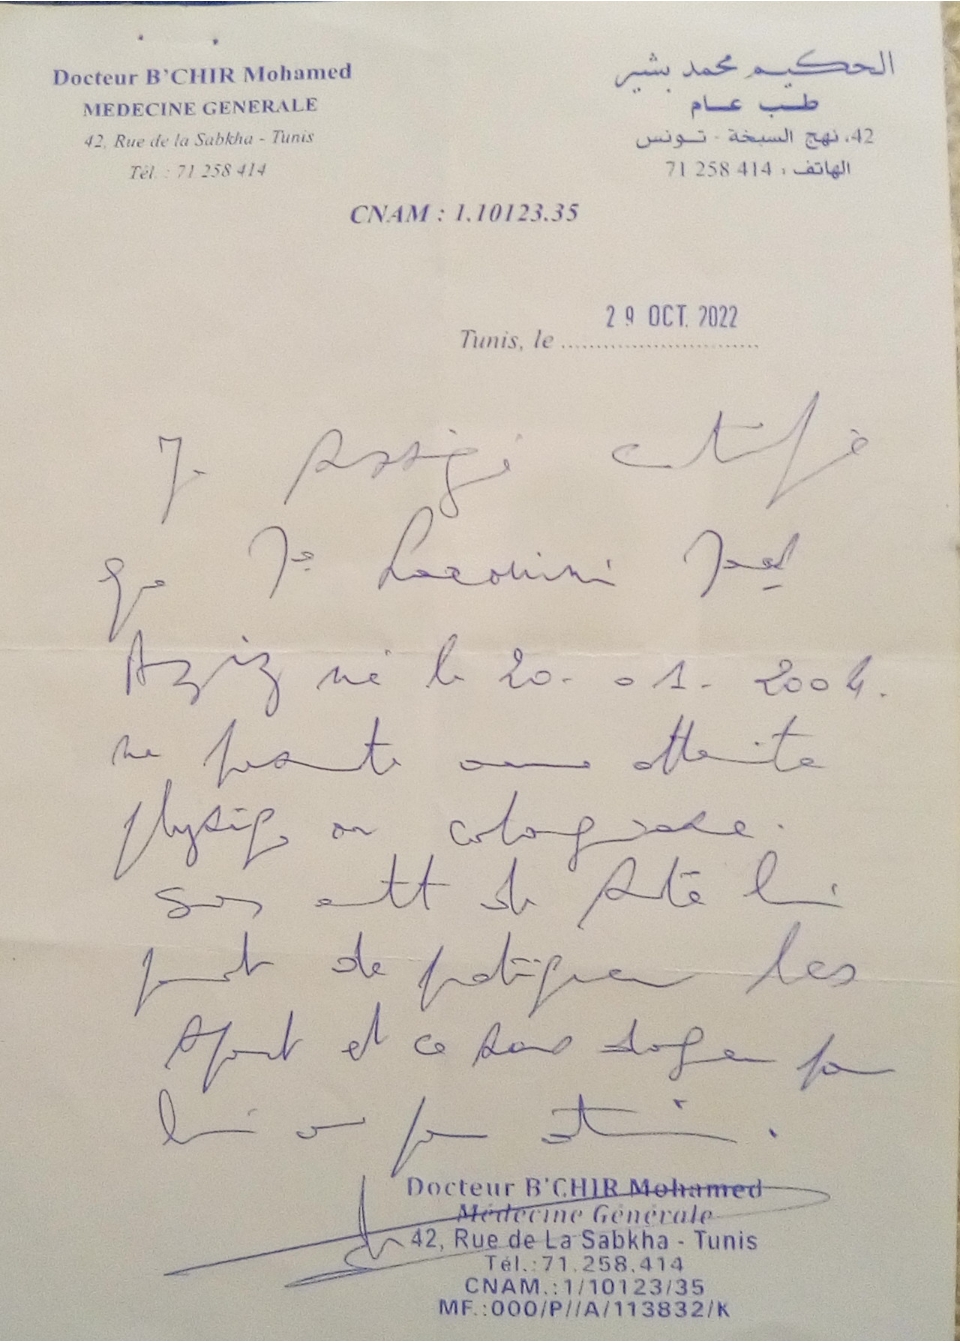 Docteur B'CHIR Mohamed
MEDECINE GENERALE
42, Rue de la Sabkha - Tunis
Tél. : 71 258 414
الحكيم محمد بشير
طب عام
42، نهج السبخة - تونس
الهاتف : 414 258 71
CNAM : 1.10123.35
Tunis, le 29 OCT. 2022
Je soussigné certifie
que
Aziz né le 20-01-2004.
ne présente aucune atteinte
physique ou
son état de santé lui
permet de pratiquer les
sport et ce sans danger pour
lui ou pour autrui.
Docteur B'CHIR Mohamed
Médecine Générale
42, Rue de La Sabkha - Tunis
Tél.:71.258.414
CNAM.:1/10123/35
MF.:000/P//A/113832/K